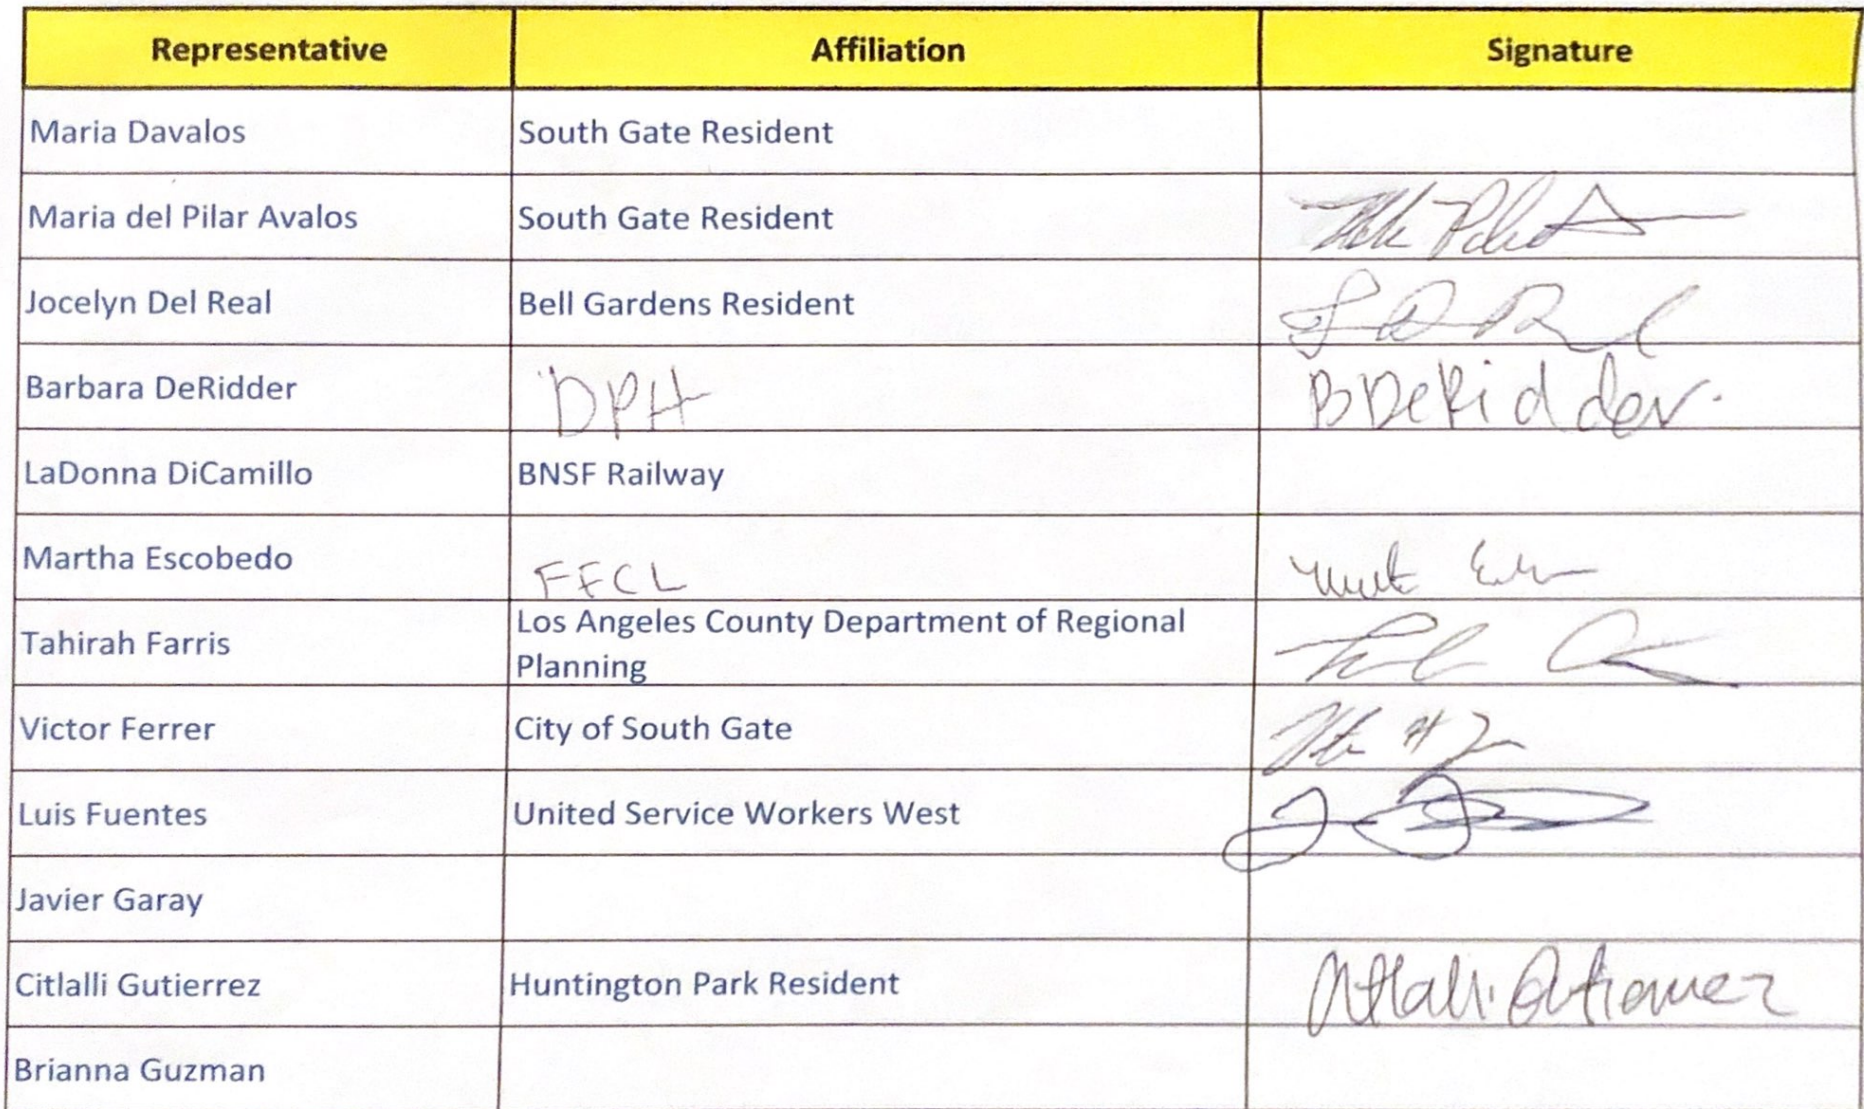 Representative Affiliation Signature
Maria Davalos South Gate Resident
Maria del Pilar Avalos South Gate Resident
Jocelyn Del Real Bell Gardens Resident
Barbara DeRidder DPH B DeRidder
LaDonna DiCamillo BNSF Railway
Martha Escobedo FFCL
Tahirah Farris Los Angeles County Department of Regional
Planning
Victor Ferrer City of South Gate
Luis Fuentes United Service Workers West
Javier Garay
Citlalli Gutierrez Huntington Park Resident Citlalli Gutierrez
Brianna Guzman